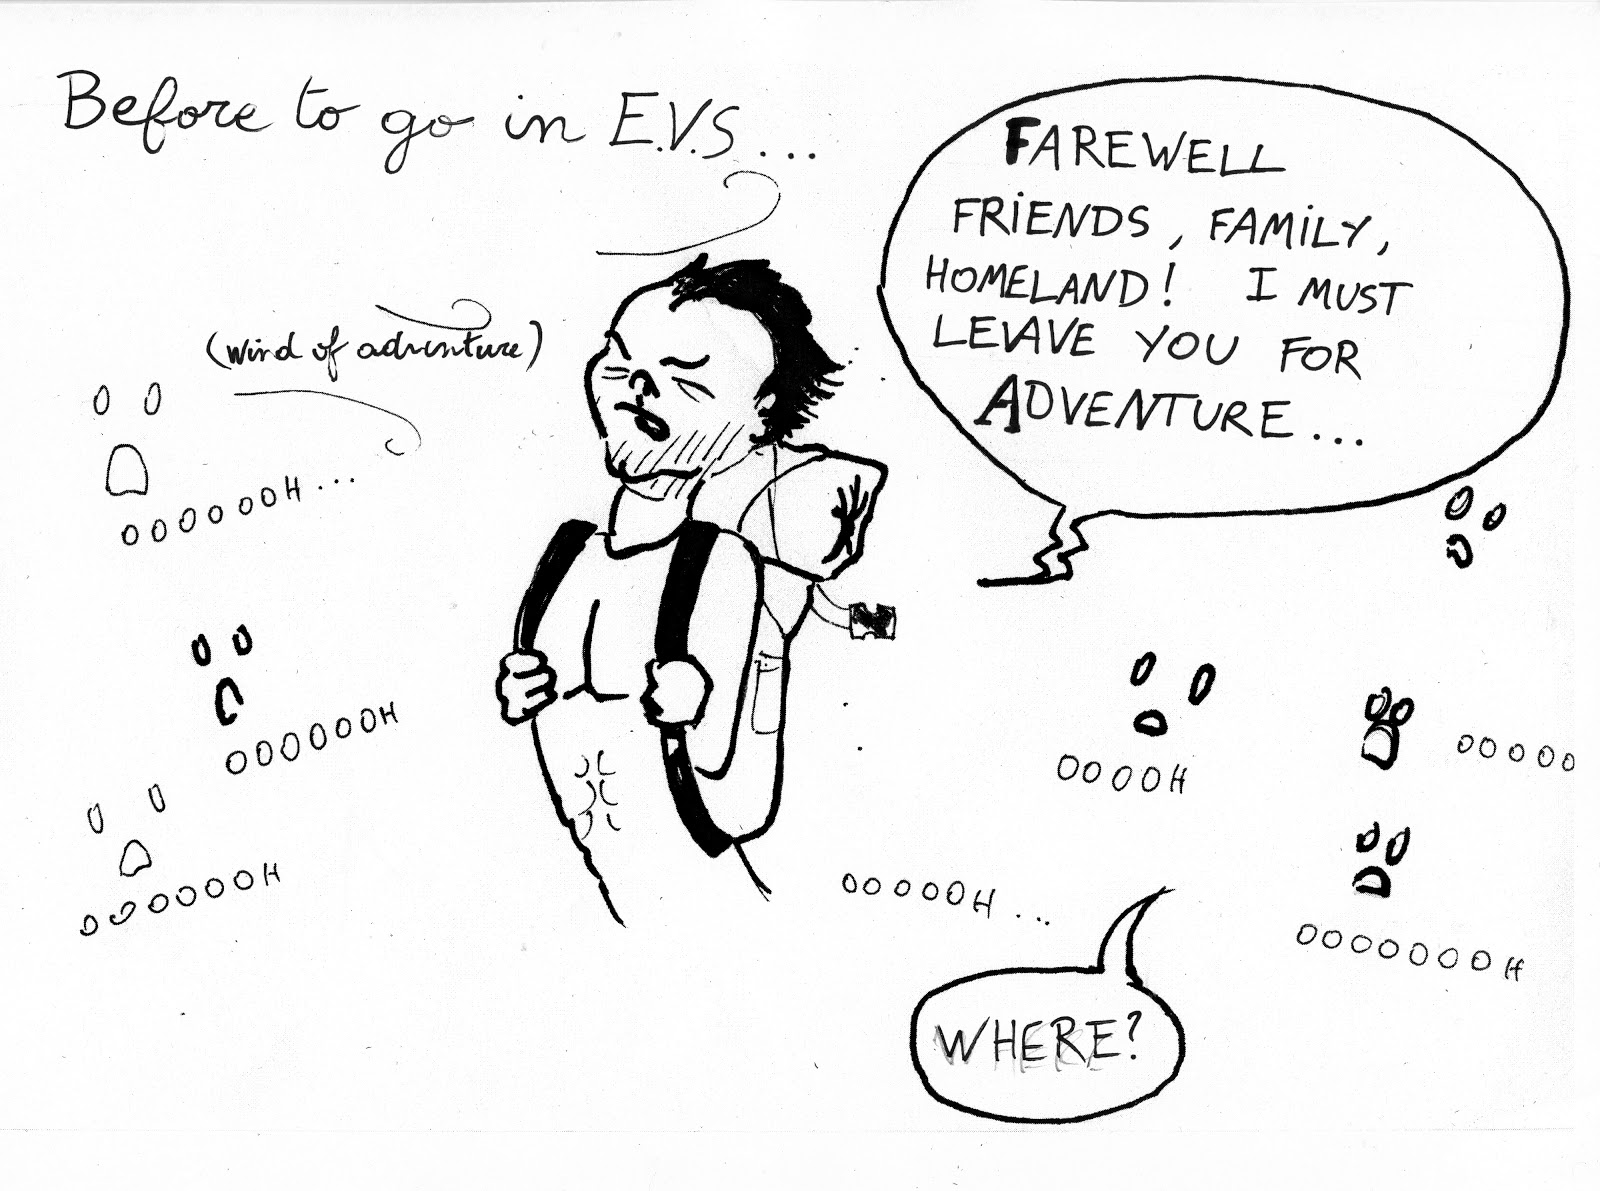 Before to go in E.V.S...
FAREWELL
FRIENDS, FAMILY,
HOMELAND! I MUST
LEAVE YOU FOR
ADVENTURE...
(wind of adventure)
OOOOOOH...
OOOOOOH
OOOOOOOH
OOOOH
OOOOO
OOOOOH...
OOOOOOOH
WHERE?